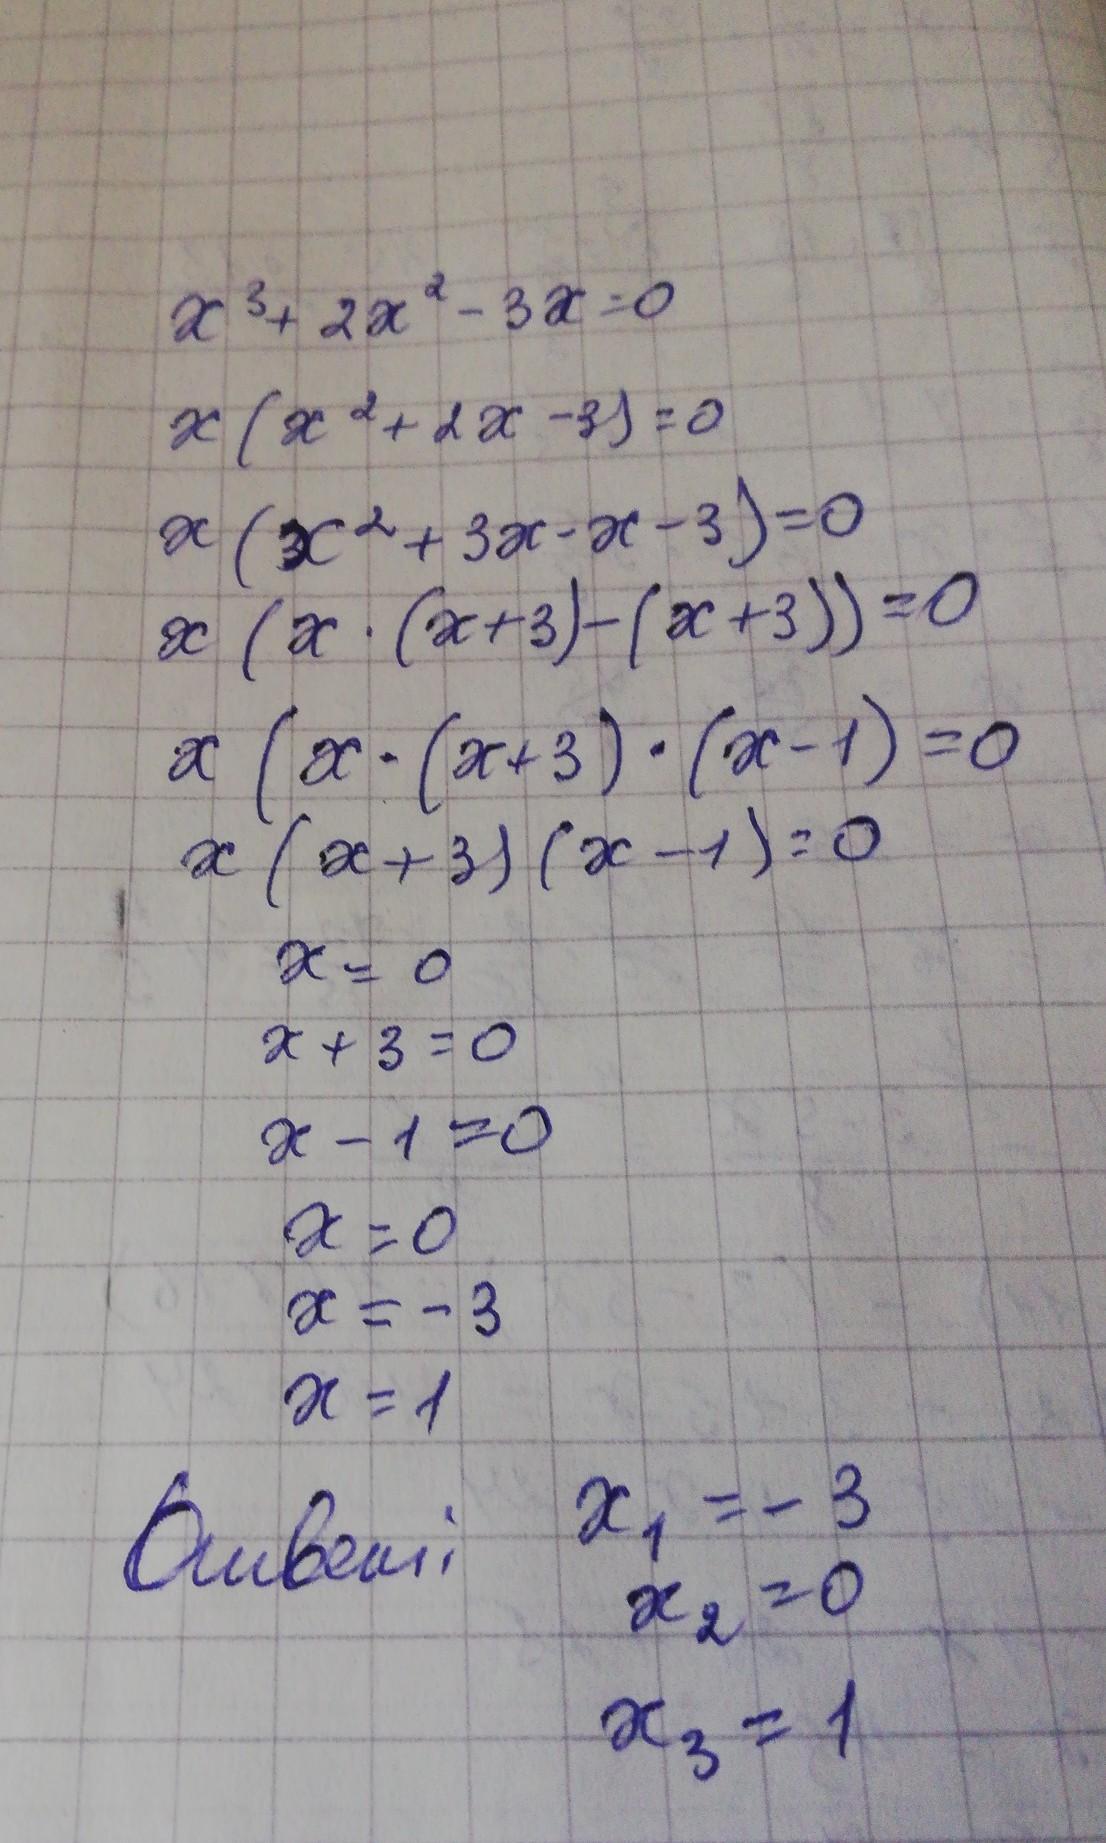 x³ + 2x² - 3x = 0
x(x² + 2x - 3) = 0
x(x² + 3x - x - 3) = 0
x(x · (x + 3) - (x + 3)) = 0
x(x · (x + 3) · (x - 1) = 0
x(x + 3)(x - 1) = 0
x = 0
x + 3 = 0
x - 1 = 0
x = 0
x = -3
x = 1
Ответ: x₁ = -3
x₂ = 0
x₃ = 1